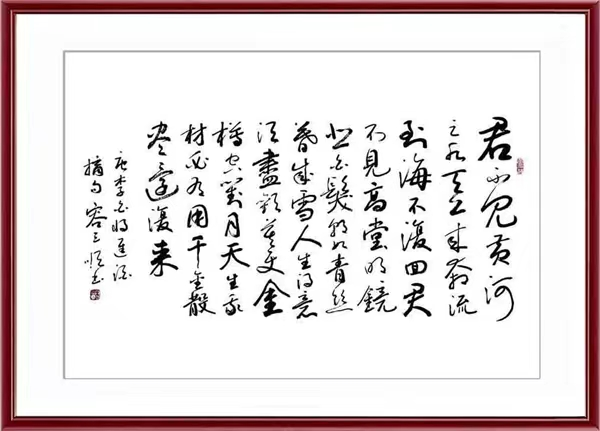 君不见黄河
之水天上来奔流
到海不復回君
不見高堂明鏡
悲白髮朝如青丝
暮成雪人生得意
须盡歡莫使金
樽空對月天生我
材必有用千金散
尽還復来
唐李白将進酒
摘句 容三 书